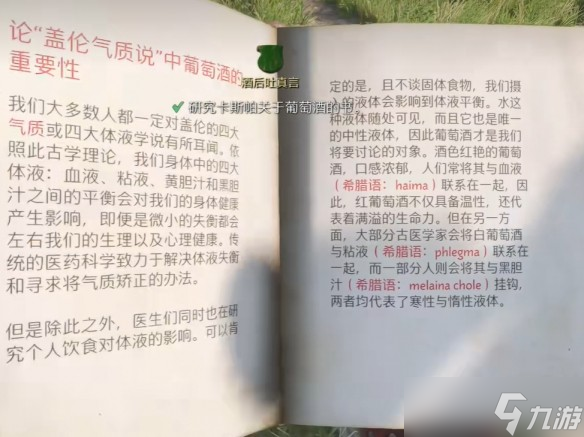 论“盖伦气质说”中葡萄酒的
重要性
我们大多数人都一定对盖伦的四大
气质或四大体液学说有所耳闻。依
照此古学理论，我们身体中的四大
体液：血液、粘液、黄胆汁和黑胆
汁之间的平衡会对我们的身体健康
产生影响，即便是微小的失衡都会
左右我们的生理以及心理健康。传
统的医药科学致力于解决体液失衡
和寻求将气质矫正的办法。
但是除此之外，医生们同时也在研
究个人饮食对体液的影响。可以肯
酒后吐真言
研究卡斯帕关于葡萄酒的书。
定的是，且不谈固体食物，我们摄
入的液体会影响到体液平衡。水这
种液体随处可见，而且它也是唯一
的中性液体，因此葡萄酒才是我们
将要讨论的对象。酒色红艳的葡萄
酒，口感浓郁，人们常将其与血液
（希腊语：haima）联系在一起，因
此，红葡萄酒不仅具备温性，还代
表着满溢的生命力。但在另一方
面，大部分古医学家会将白葡萄酒
与粘液（希腊语：phlegma）联系在
一起，而一部分人则会将其与黑胆
汁（希腊语：melaina chole）挂钩，
两者均代表了寒性与惰性液体。
九游